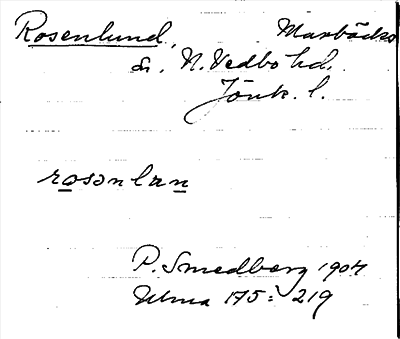 Rosenlund, Marbäcks
sn. N. Vedbo hd.
Jönk. l.
rosənlan
P. Smedberg 1904
Ulma 175: 219